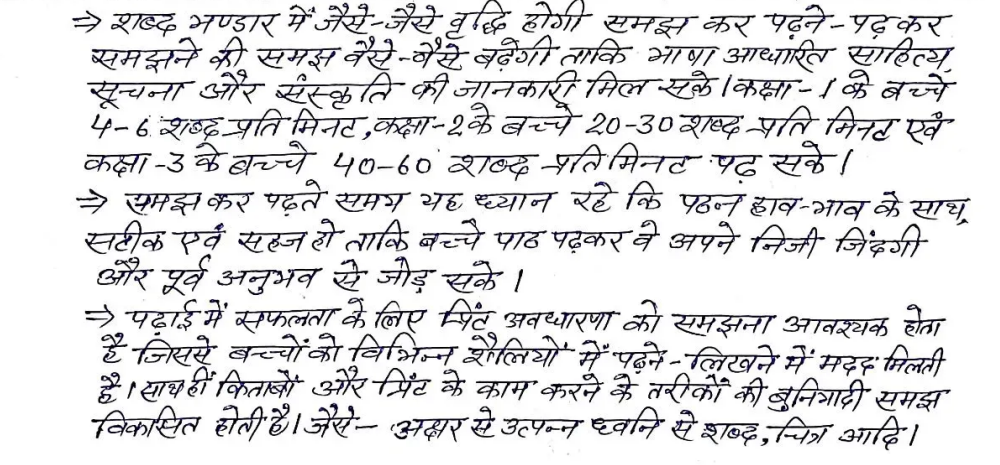 ⇒ शब्द भण्डार में जैसे-जैसे वृद्धि होगी समझ कर पढ़ने-पढ़ कर
समझने की समझ वैसे-वैसे बढ़ेगी ताकि भाषा आधारित साहित्य,
सूचना और संस्कृति की जानकारी मिल सके। कक्षा-1 के बच्चे
4-6 शब्द प्रति मिनट, कक्षा-2 के बच्चे 20-30 शब्द प्रति मिनट एवं
कक्षा-3 के बच्चे 40-60 शब्द प्रति मिनट पढ़ सके।
⇒ समझ कर पढ़ते समय यह ध्यान रहे कि पठन हाव-भाव के साथ,
सटीक एवं सहज हो ताकि बच्चे पाठ पढ़कर वे अपने निजी जिंदगी
और पूर्व अनुभव से जोड़ सके।
⇒ पढ़ाई में सफलता के लिए प्रिंट अवधारणा को समझना आवश्यक होता
है जिससे बच्चों को विभिन्न शैलियों में पढ़ने-लिखने में मदद मिलती
है। साथ हीं किताबों और प्रिंट के काम करने के तरीकों की बुनियादी समझ
विकसित होती है। जैसे- अक्षर से उत्पन्न ध्वनि से शब्द, चित्र आदि।